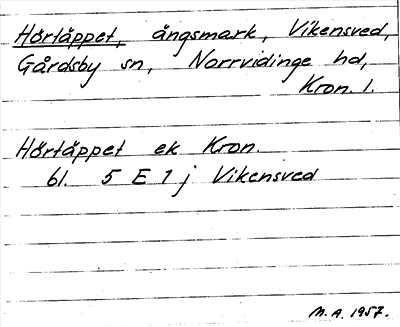 Hörtäppet, ängsmark, Vikensved,
Gårdsby sn, Norrvidinge hd,
Kron. l.
Hörtäppet ek Kron.
bl. 5 E 1 j Vikensved
M.A. 1957.